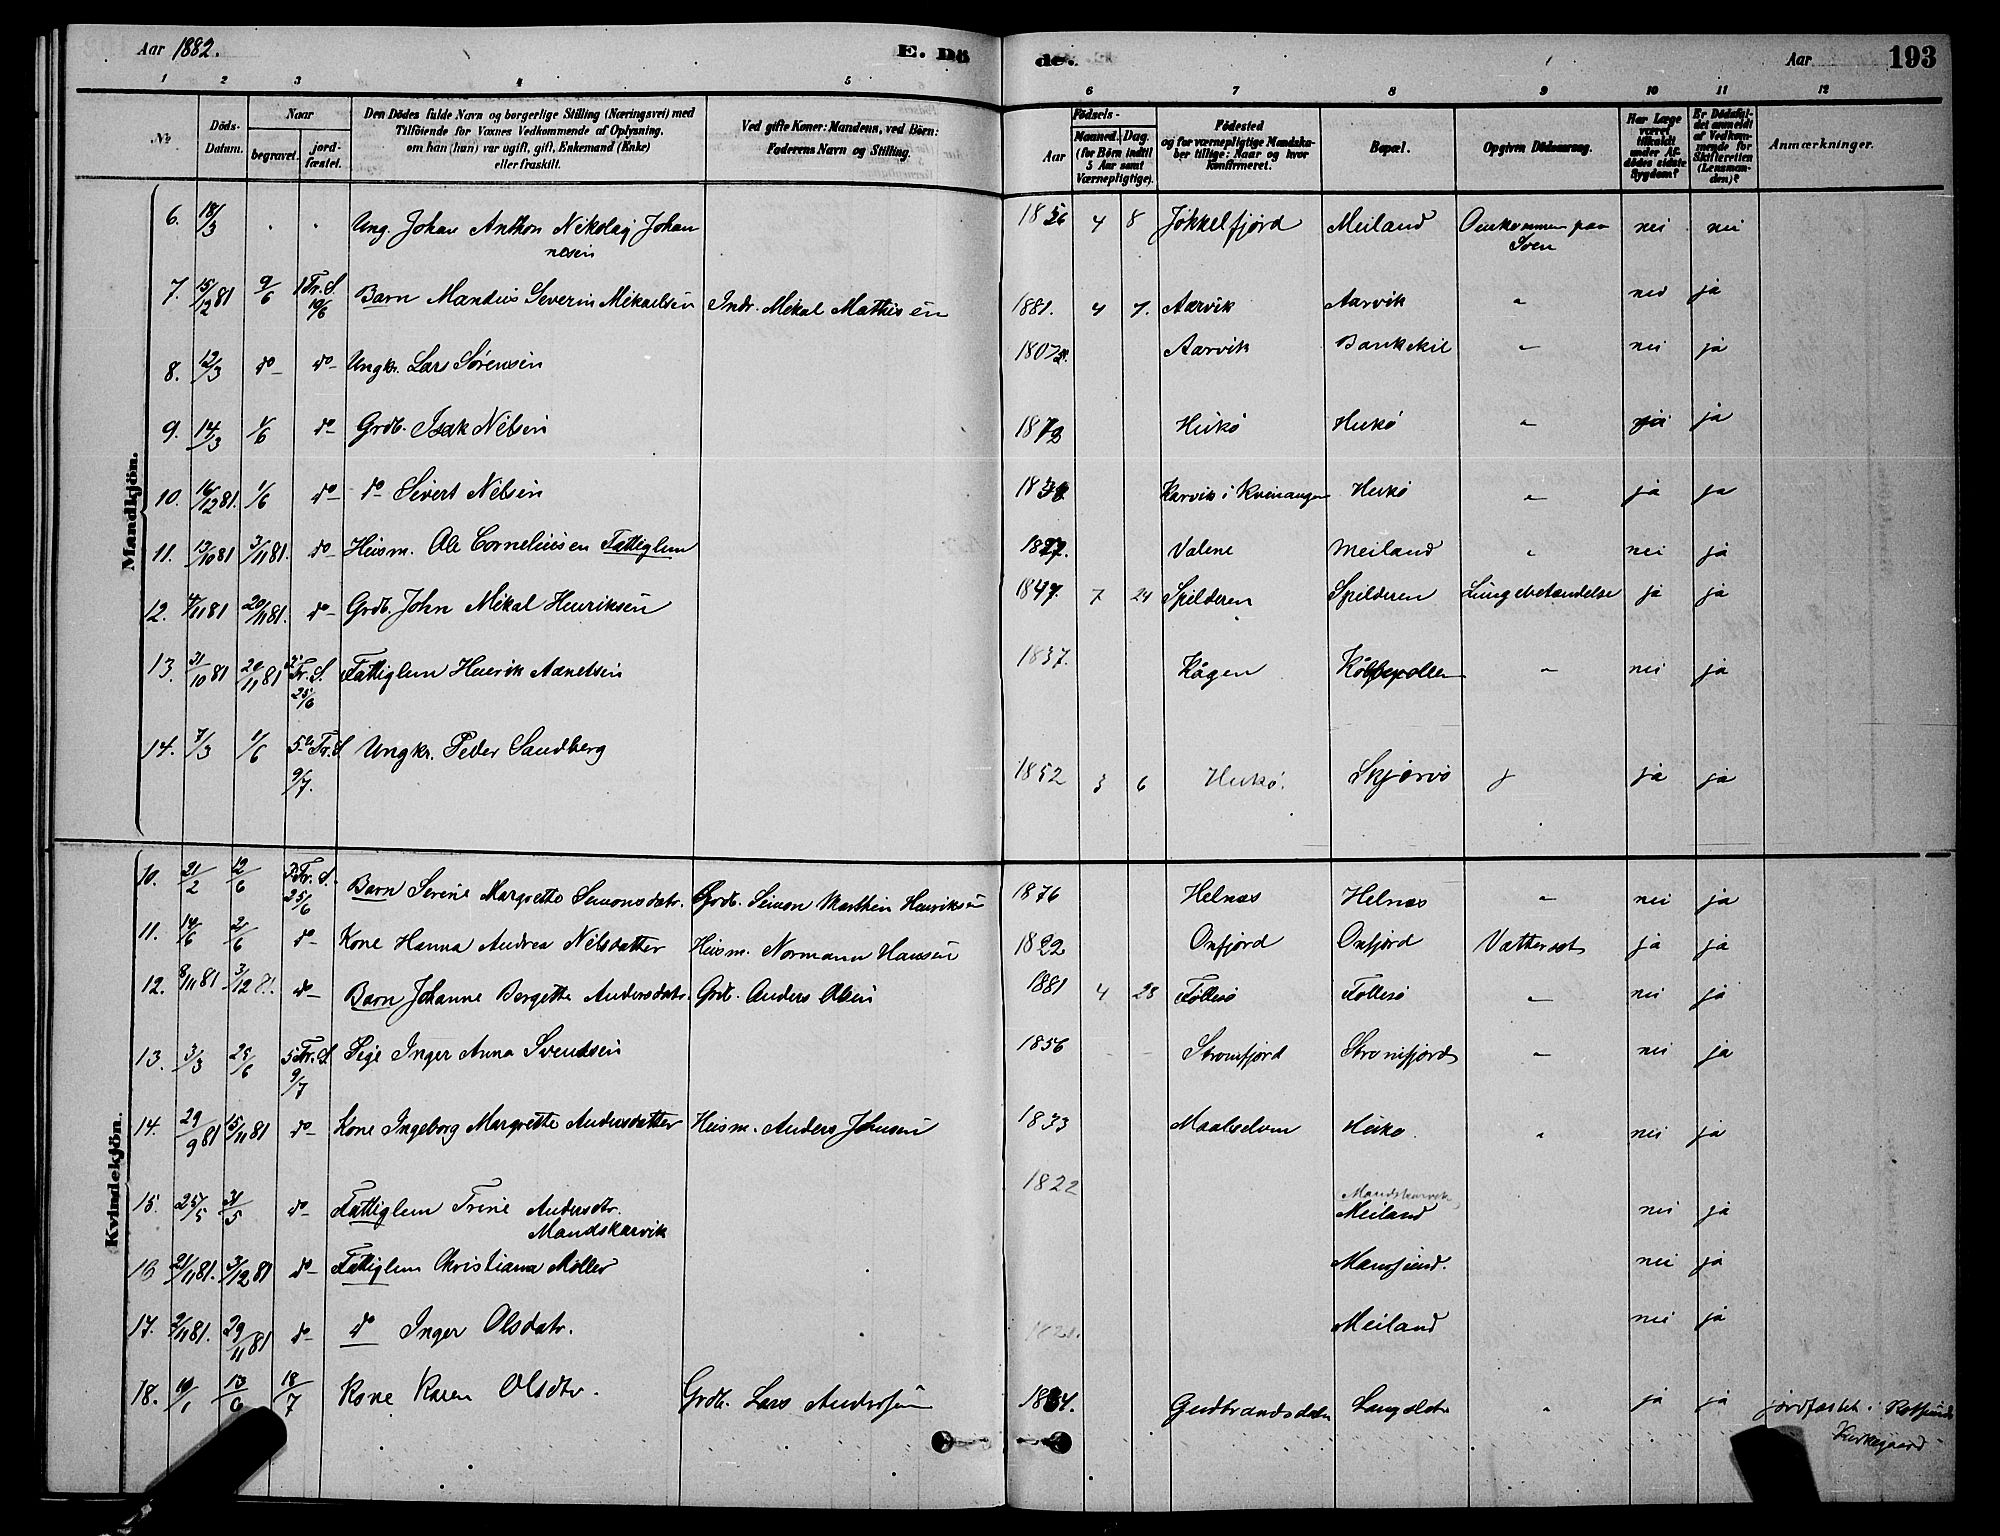 Aar 1882. E. Dö
de. Aar 193
1 2 3 4 5 6 7 8 9 10 11 12
No Döds-Datum. Naar begravet. jordfæstet. Den Dödes fulde Navn og borgerlige Stilling (Næringsvei) med Tilföiende for Voxnes Vedkommende af Oplysning, om han (hun) var ugift, gift, Enkemand (Enke) eller fraskilt. Ved gifte Koner: Mandens, ved Börn: Faderens Navn og Stilling.
Födsels- Aar Maaned. Dag. (for Börn indtil 5 Aar samt Værnepligtige). Födested og for værnepligtige Mandskaber tillige: Naar og hvor konfirmeret. Bopæl. Opgiven Dödsaarsag. Har Læge været tilkaldt under Afdödes sidste Sygdom? Er Dödsfaldet anmeldt af Vedkommende for Skifteretten (Lensmanden)? Anmærkninger.
Mandkjön.
6. 18/3 " " Ung. Johan Anthon Nikolaj Johannesen 1856 4 8 Jökkelfjord Meiland Omkommen paa Söen nei nei
7. 15/12 81 9/6 1 Tr. S. Barn Mandius Severin Mikaelsen Indr. Mikal Mathisen 1881. 4 7. Aarvik Aarvik " nei ja
8. 12/3 do do Ungkr. Lars Sörensen Aarvik " nei ja
9. 14/3 1/6 do Grdb. Isak Nilsen Heikö Heikö " ja
10. 16/12 81. 1/6 do do Sivert Nilsen Karvik i Kvænangen Heikö " ja ja
11. 13/10 81 3/11 81. do Husm. Ole Corneliusen Fattiglem 1827. Valene Meiland " nei ja
12. 4/11 81 20/11 81. do Grdb. John Mikal Henriksen 1847. 7 24 Spilderen Spilderen Lungebetændelse ja ja
13. 31/10 81 20/11 81 Tr. S. 25/6 Fattiglem Henrik Anetsen 1837. Kågen " nei ja
14. 7/3 1/6 5te Tr. S 9/7. Ungkr. Peder Sandberg 1852 3 6 Heikö. Skjervö ja ja
Kvindekjön.
10. 21/2 12/6 3 Tr. S. 25/6 Barn Serine Margrethe Simonsdatr. Grdb. Simon Marthin Henriksen 1876 Helnæs Helnæs " nei ja
11. 14/6 2/6 do Kone Hanna Andrea Nilsdatter Husm. Normann Hansen 1822 Oxfjord Oxfjord Vattersot ja ja
12. 8/11 81 3/12 81. do Barn Johanne Bergette Andersdatr. Grdb. Anders Olsen 1881 4 28 Follesö Follesö " nei ja
13. 3/3 25/6 5 Tr. S. 9/7 Pige Inger Anna Svendsen 1856 Straumfjord Straumfjord " nei ja
14. 29/9 81 15/11 81 do Kone Ingeborg Margrethe Andersdatter Husm. Anders Johnsen 1833 Maalselven Heikö. " nei ja
15. 25/5 31/5 do Fattiglem Trine Andersdtr. Mandskarvik 1822 Mandskarvik Meiland nei ja
16 21/11 81. 3/12 81 do Fattiglem Christiana Möller nei ja
17. 2/11 81. 29/11 81 do do Inger Olsdatr. Meiland nei ja
18. 10/1 13/6 18/7 Kone Karen Olsdtr. Grdb. Lars Andersen Gudbrandsdalen " ja ja jordfæstet i Rotsund Kirkegaard